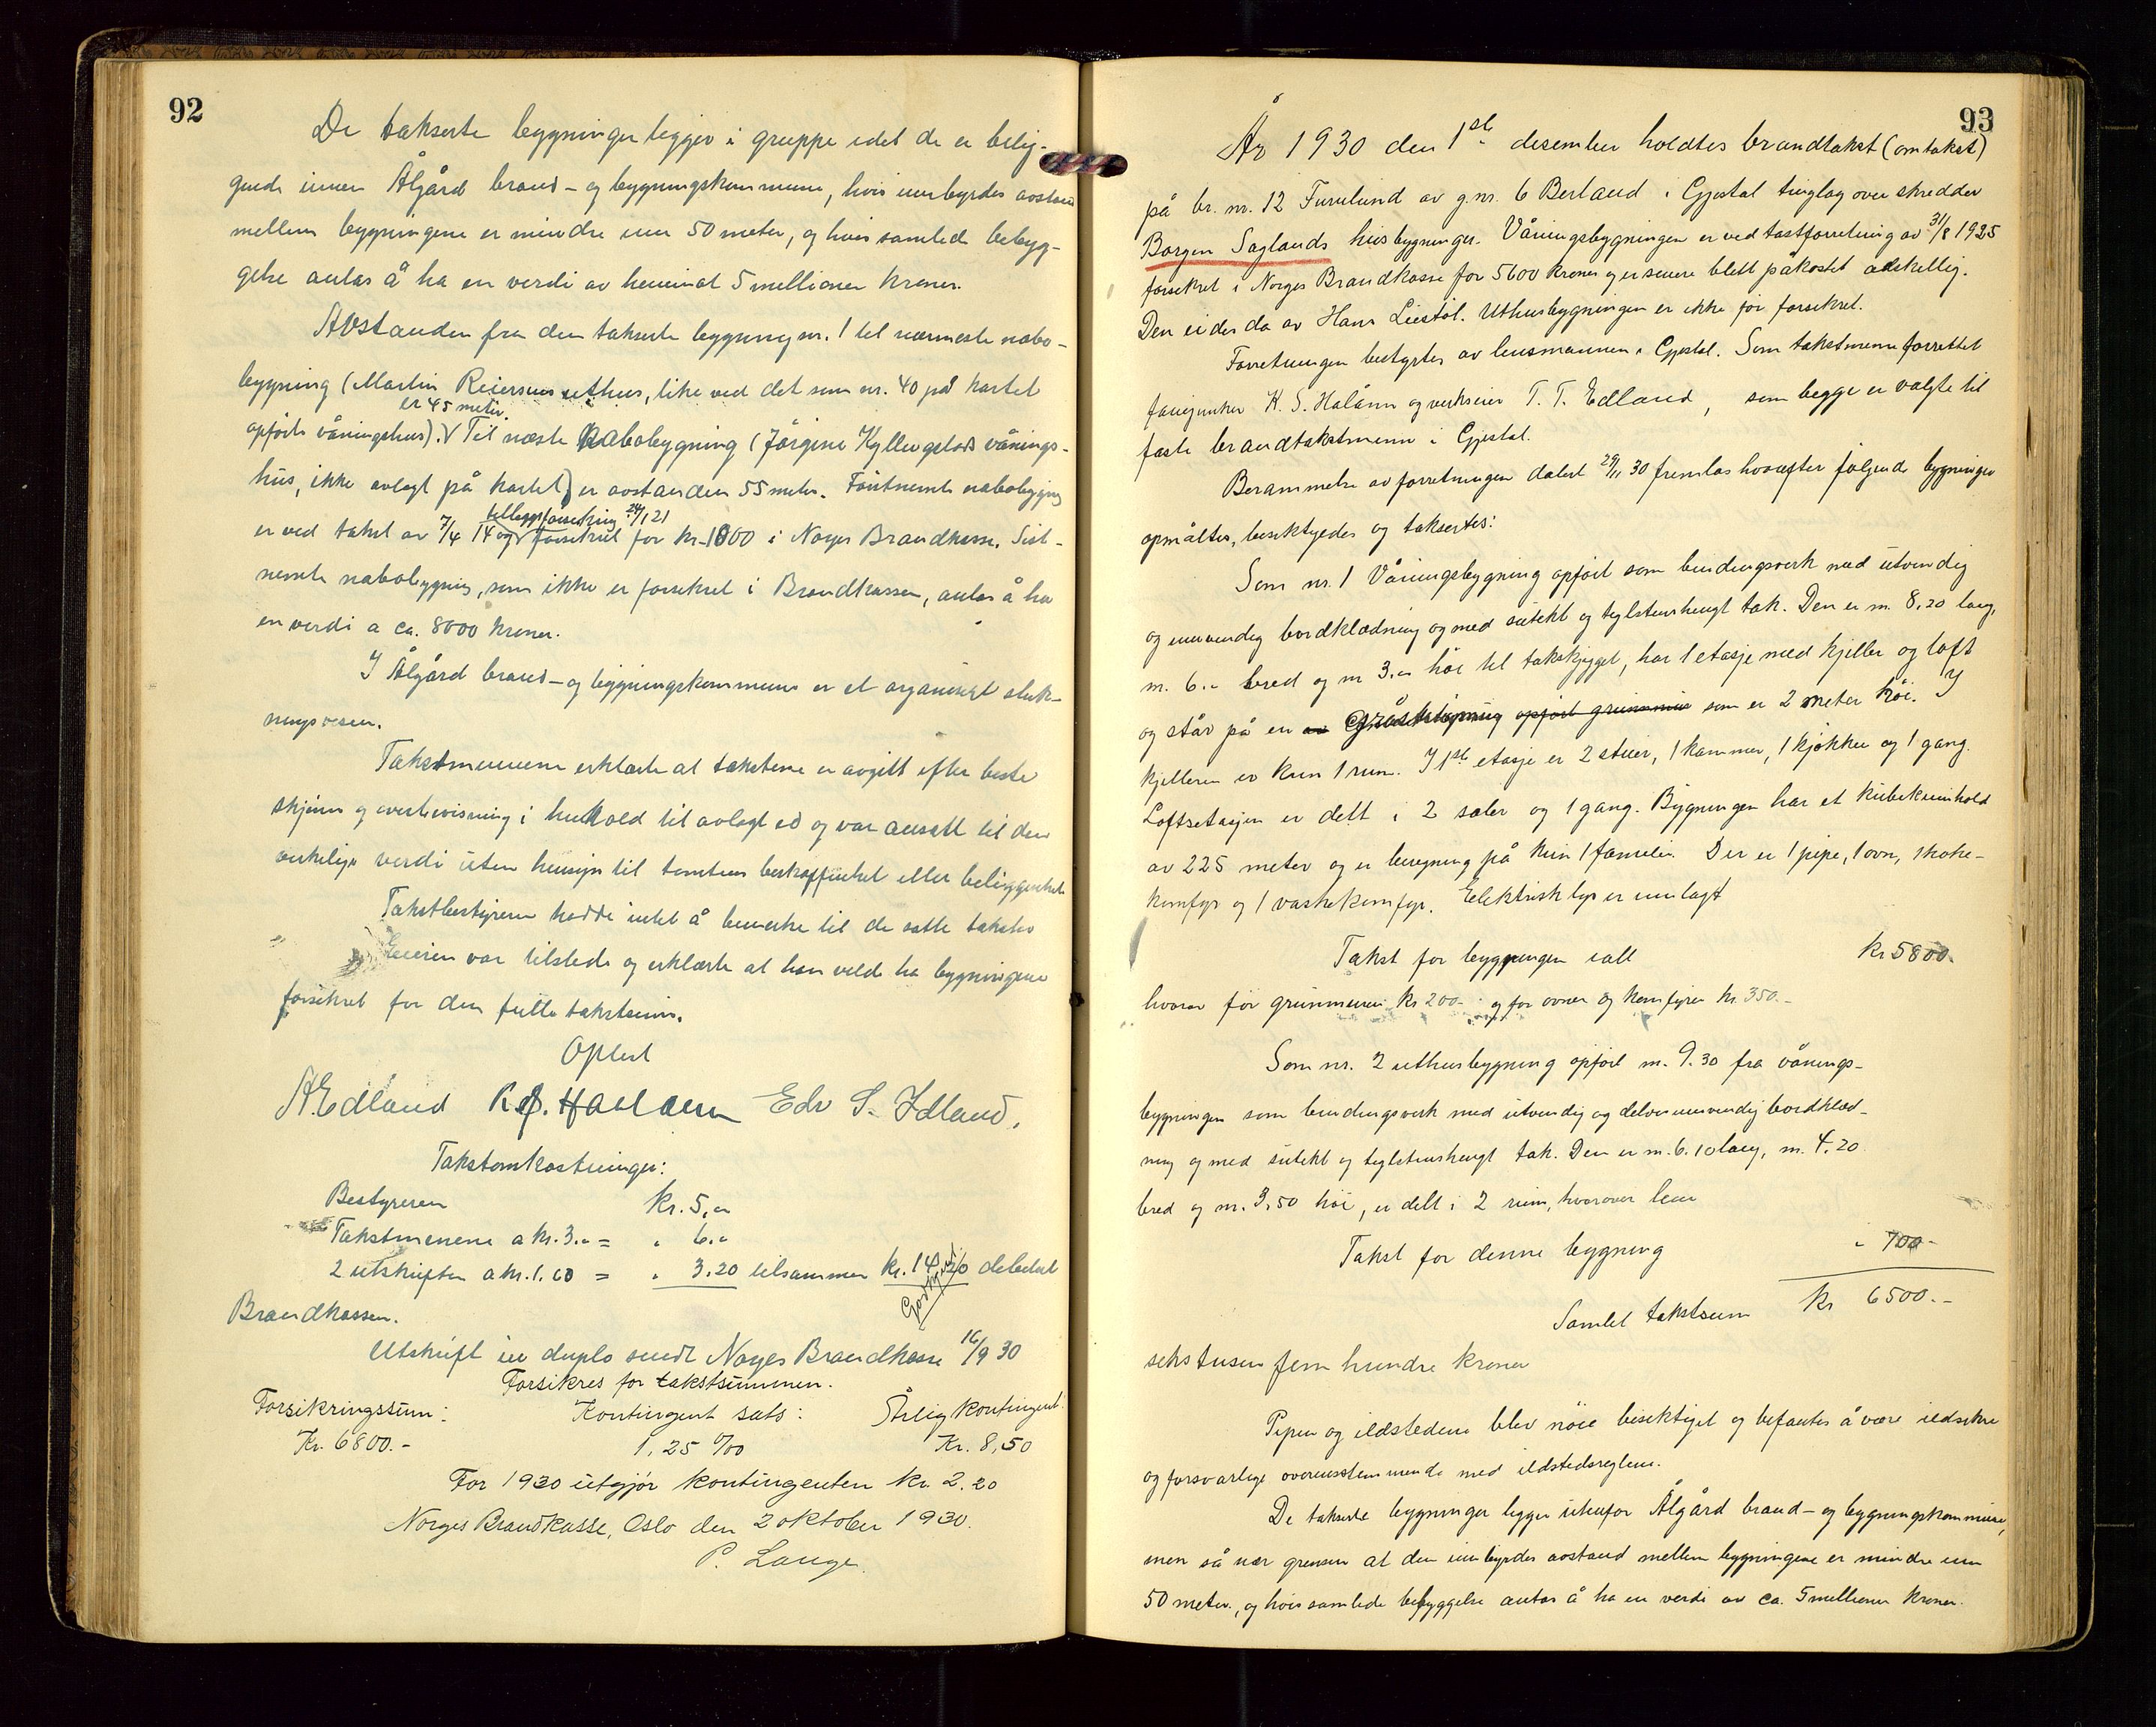 92
De takserte bygninger ligger i gruppe idet de er belig-
gende innen Ålgård brand- og bygningskommune, hvis innbyrdes avstand
mellem bygningene er mindre enn 50 meter, og hvis samlede bebyg-
gelse antas å ha en verdi av henimot 5 millioner kroner.
Avstanden fra den takserte bygning nr. 1 til nærmeste nabo-
bygning (Martin Reiersens uthus, like ved det som nr. 40 på kartet
er 45 meter.
opførte våningshus). V Til næste nabobygning (Jørgine Kyllingstads vånings-
hus, ikke avlagt på kartet) er avstanden 55 meter. Førstnemte nabobygning
tilleggsforsikring 24/1 21
er ved takst av 7/4 14 og V forsikret for kr. 1800 i Norges Brandkasse. Sist-
nemte nabobygning, som ikke er forsikret i Brandkassen, antas å ha
en verdi a ca. 8000 kroner.
I Ålgård brand- og bygningskommune er et organisert sluk-
ningsvesen.
Takstmennene erklærte at takstene er avgitt efter beste
skjønn og overbevisning i henhold til avlagt ed og var ansatt til den
virkelige verdi uten hensyn til tomtens beskaffenhet eller beliggenhet
Takstbestyreren hadde intet å bemerke til de satte takster
Eieren var tilstede og erklærte at han vilde ha bygningene
forsikret for den fulle takstsum.
Oplest
A. Edland K. S. Haalann Edv S. Idland.
Takstomkostninger:
Bestyreren kr. 5,"
Takstmennene a kr. 3." = " 6."
2 utskrifter a kr. 1.60 = " 3.20 tilsammen kr. 14.20 debitert
Godkjent
Brandkassen.
Utskrift in duplo sendt Norges Brandkasse 16/9 30
Forsikres for takstsummen.
Forsikringssum: Kontingent sats: Årlig kontingent:
Kr. 6800.- 1,25 0/00 Kr. 8,50
For 1930 utgjør kontingenten kr. 2.20
Norges Brandkasse, Oslo den 2 oktober 1930.
P. Lange.
93
År 1930 den 1ste desember holdtes brandtakst (omtakst)
på br. nr. 12 Furulund av g.nr. 6 Berland i Gjestal tinglag over skredder
Børgen Saglands husbygninger. Våningsbygningen er ved takstforretning av 31/8 1925
forsikret i Norges Brandkasse for 5600 kroner og er senere blitt påkostet adskillig.
Den eides da av Hans Liestøl. Uthusbygningen er ikke før forsikret.
Forretningen bestyrtes av lensmannen i Gjestal. Som takstmenn forrettet
fanejunker K. S. Halånn og verkseier T. T. Edland, som begge er valgte til
faste brandtakstmenn i Gjestal.
Berammelse av forretningen datert 29/11 30 fremlas hvorefter følgende bygninger
opmåltes, besiktigedes og taksertes:
Som nr. 1 Våningsbygning opført som bindingsverk med utvendig
og innvendig bordklædning og med sutekt og teglstenshengt tak. Den er m. 8,20 lang,
m. 6." bred og m 3." høi til takskjegget, har 1 etasje med kjeller og loft
og står på en av gråstensmur opført grunnmur som er 2 meter høi. I
kjelleren er kun 1 rum. I 1ste etasje er 2 stuer, 1 kammer, 1 kjøkken og 1 gang.
Loftsetasjen er delt i 2 saler og 1 gang. Bygningen har et kubikkinnhold
av 225 meter og er beregning på kun 1 familie. Der er 1 pipe, 1 ovn, 1 koke-
komfyr og 1 vaskekomfyr. Elektrisk lys er innlagt
Takst for bygningen ialt kr 5800.
hvorav for grunnmuren kr 200.- og for ovner og komfyrer kr. 350.-
Som nr. 2 uthusbygning opført m. 9.30 fra vånings-
bygningen som bindingsverk med utvendig og delvis innvendig bordklæd-
ning og med sutekt og teglstenshengt tak. Den er m. 6.10 lang, m. 4,20
bred og m. 3,50 høi, er delt i 2 rum, hvorover lem
Takst for denne bygning " 700-
Samlet takstsum kr 6500.-
sekstusen fem hundre kroner
Pipen og ildstedene blev nøie besiktiget og befantes å være ildsikre
og forsvarlige overensstemmende med ildstedsreglene.
De takserte bygninger ligger utenfor Ålgård brand- og bygningskommune,
men så nær grensen at den innbyrdes avstand mellem bygningene er mindre enn
50 meter, og hvis samlede bebyggelse antas å ha en verdi av ca. 5 millioner kroner.